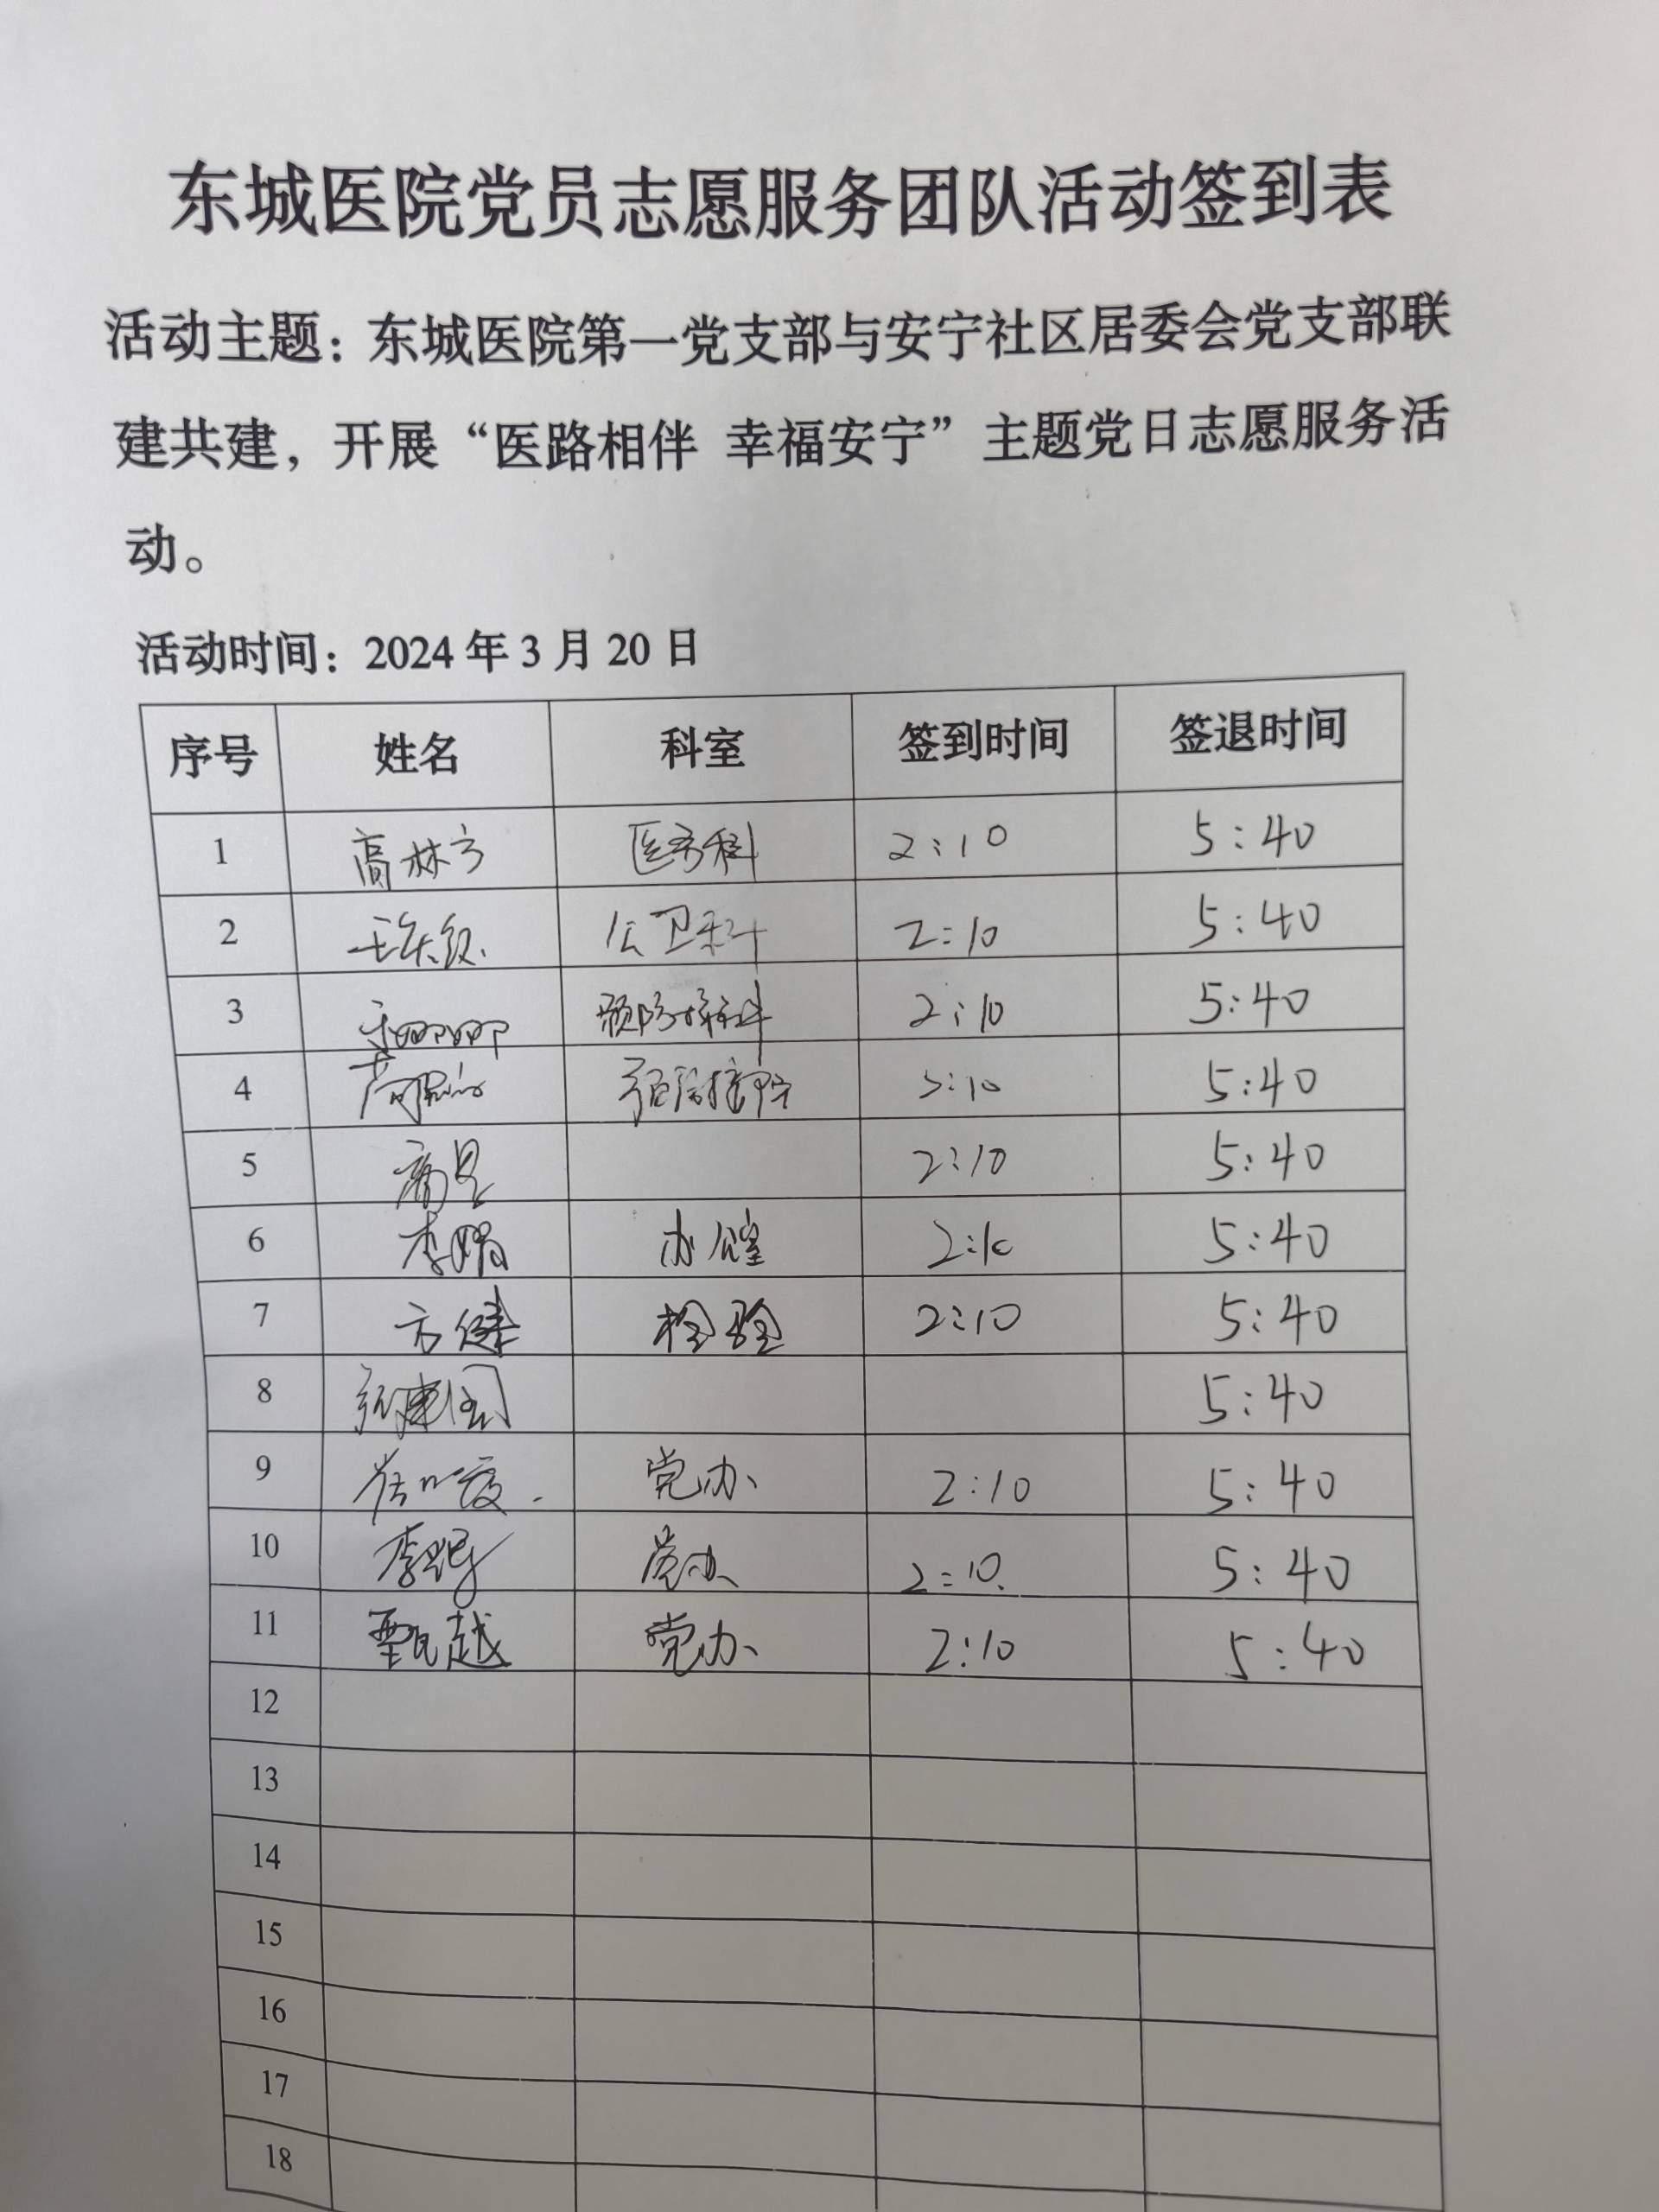 东城医院党员志愿服务团队活动签到表
活动主题：东城医院第一党支部与安宁社区居委会党支部联
建共建，开展“医路相伴 幸福安宁”主题党日志愿服务活
动。
活动时间：2024年3月20日
序号 姓名 科室 签到时间 签退时间
1 高林方 医务科 2:10 5:40
2 公卫科 2:10 5:40
3 预防接种科 2:10 5:40
4 预防接种 2:10 5:40
5 2:10 5:40
6 李娟 办公室 2:10 5:40
7 方健 检验 2:10 5:40
8 张建国 5:40
9 党办 2:10 5:40
10 党办 2:10 5:40
11 甄越 党办 2:10 5:40
12
13
14
15
16
17
18